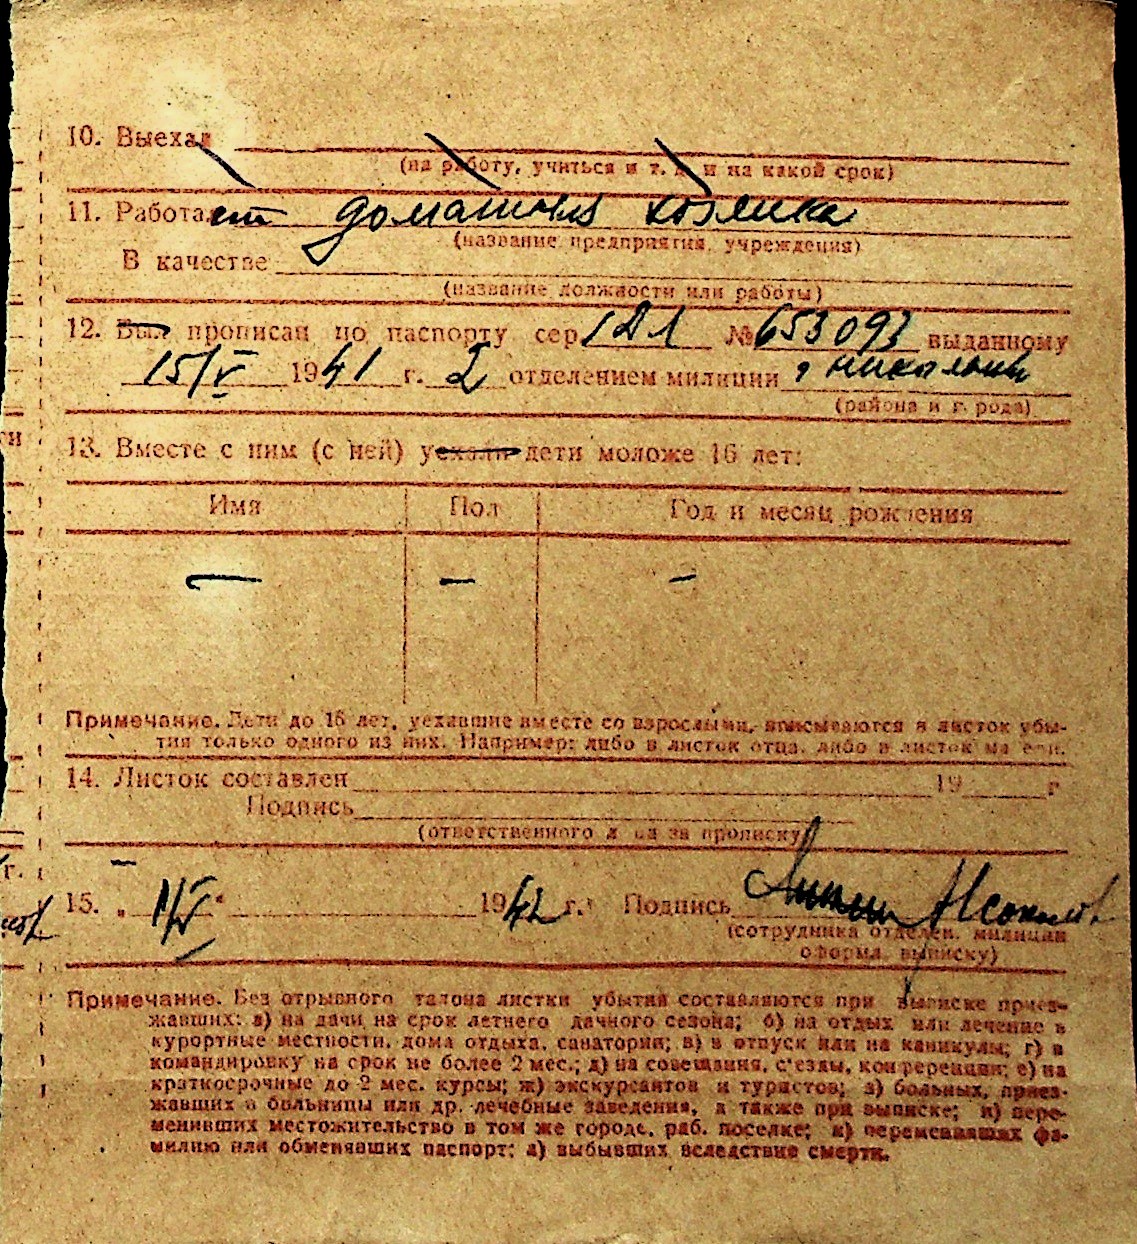 10. Выехал
(на работу, учиться и т. д. и на какой срок)
11. Работает домашняя хозяйка
(название предприятия, учреждения)
В качестве
(название должности или работы)
12. Был прописан по паспорту сер № 653093 выданному
15/V 1941 г. 2 отделением милиции г Николаев
(района и города)
13. Вместе с ним (с ней) уехали дети моложе 16 лет:
Имя Пол Год и месяц рождения
— — —
Примечание. Дети до 16 лет, уехавшие вместе со взрослыми, вписываются в листок убы-
тия только одного из них. Например: либо в листок отца, либо в листок матери.
14. Листок составлен 19 г
Подпись
(ответственного лица за прописку)
г.
15. „ 1/V “ 1942 г. Подпись
(сотрудника отделен. милиции
оформил выписку)
Примечание. Без отрывного талона листки убытия составляются при выписке приез-
жавших: а) на дачи на срок летнего дачного сезона; б) на отдых или лечение в
курортные местности, дома отдыха, санатории; в) в отпуск или на каникулы; г) в
командировку на срок не более 2 мес.; д) на совещания, с'езды, конференции; е) на
краткосрочные до 2 мес. курсы; ж) экскурсантов и туристов; з) больных, приез-
жавших в больницы или др. лечебные заведения, а также при выписке; и) пере-
менивших местожительство в том же городе, раб. поселке; к) переменивших фа-
милию или обменявших паспорт; л) выбывших вследствие смерти.